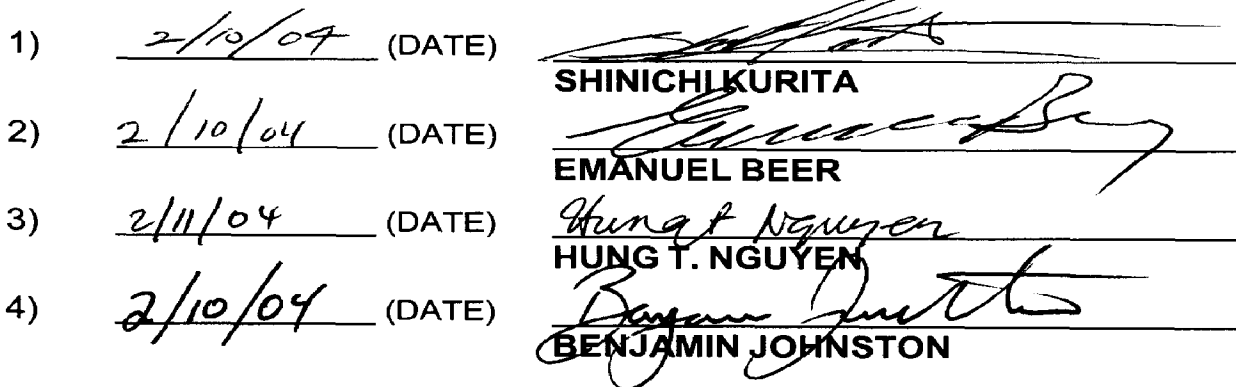 1) 2/10/04 (DATE)
SHINICHI KURITA
2) 2/10/04 (DATE)
EMANUEL BEER
3) 2/11/04 (DATE) Hung T Nguyen
HUNG T. NGUYEN
4) 2/10/04 (DATE)
BENJAMIN JOHNSTON